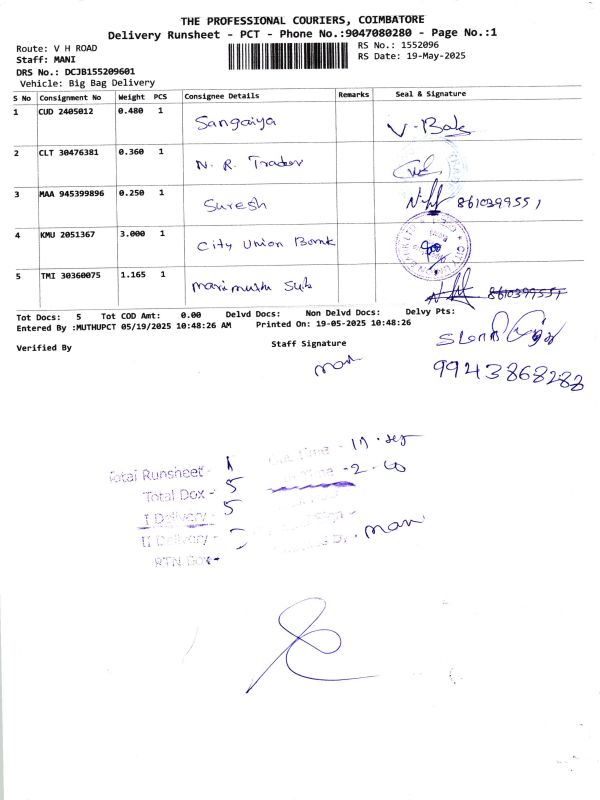 THE PROFESSIONAL COURIERS, COIMBATORE
Delivery Runsheet - PCT - Phone No.:9047080280 - Page No.:1
Route: V H ROAD
RS No.: 1552096
Staff: MANI
RS Date: 19-May-2025
DRS No.: DCJB155209601
Vehicle: Big Bag Delivery
S No Consignment No Weight PCS Consignee Details Remarks Seal & Signature
1 CUD 2405012 0.480 1 Sangaiya V-Bak
2 CLT 30476381 0.360 1 N. R. Trader
3 MAA 945399896 0.250 1 Suresh
4 KMU 2051367 3.000 1 City Union Bank
5 TMI 30360075 1.165 1
Tot Docs: 5 Tot COD Amt: 0.00 Delvd Docs: Non Delvd Docs: Delvy Pts:
Entered By :MUTHUPCT 05/19/2025 10:48:26 AM Printed On: 19-05-2025 10:48:26
Verified By
Staff Signature
mani
9943868288
Total Runsheet -
Total Dox - 5
I Delivery - 5
II Delivery -
RTN Dox -
mani